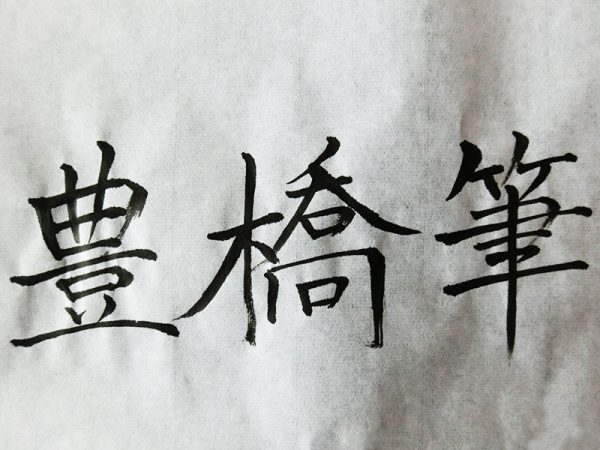 豊橋筆